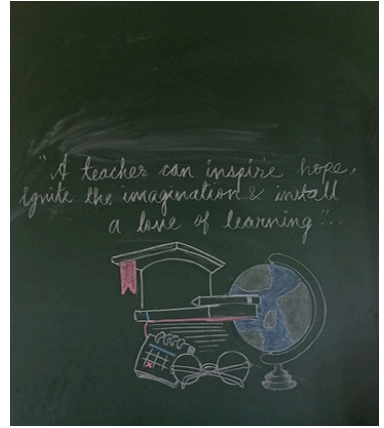 "A teacher can inspire hope,
ignite the imagination & install
a love of learning"...